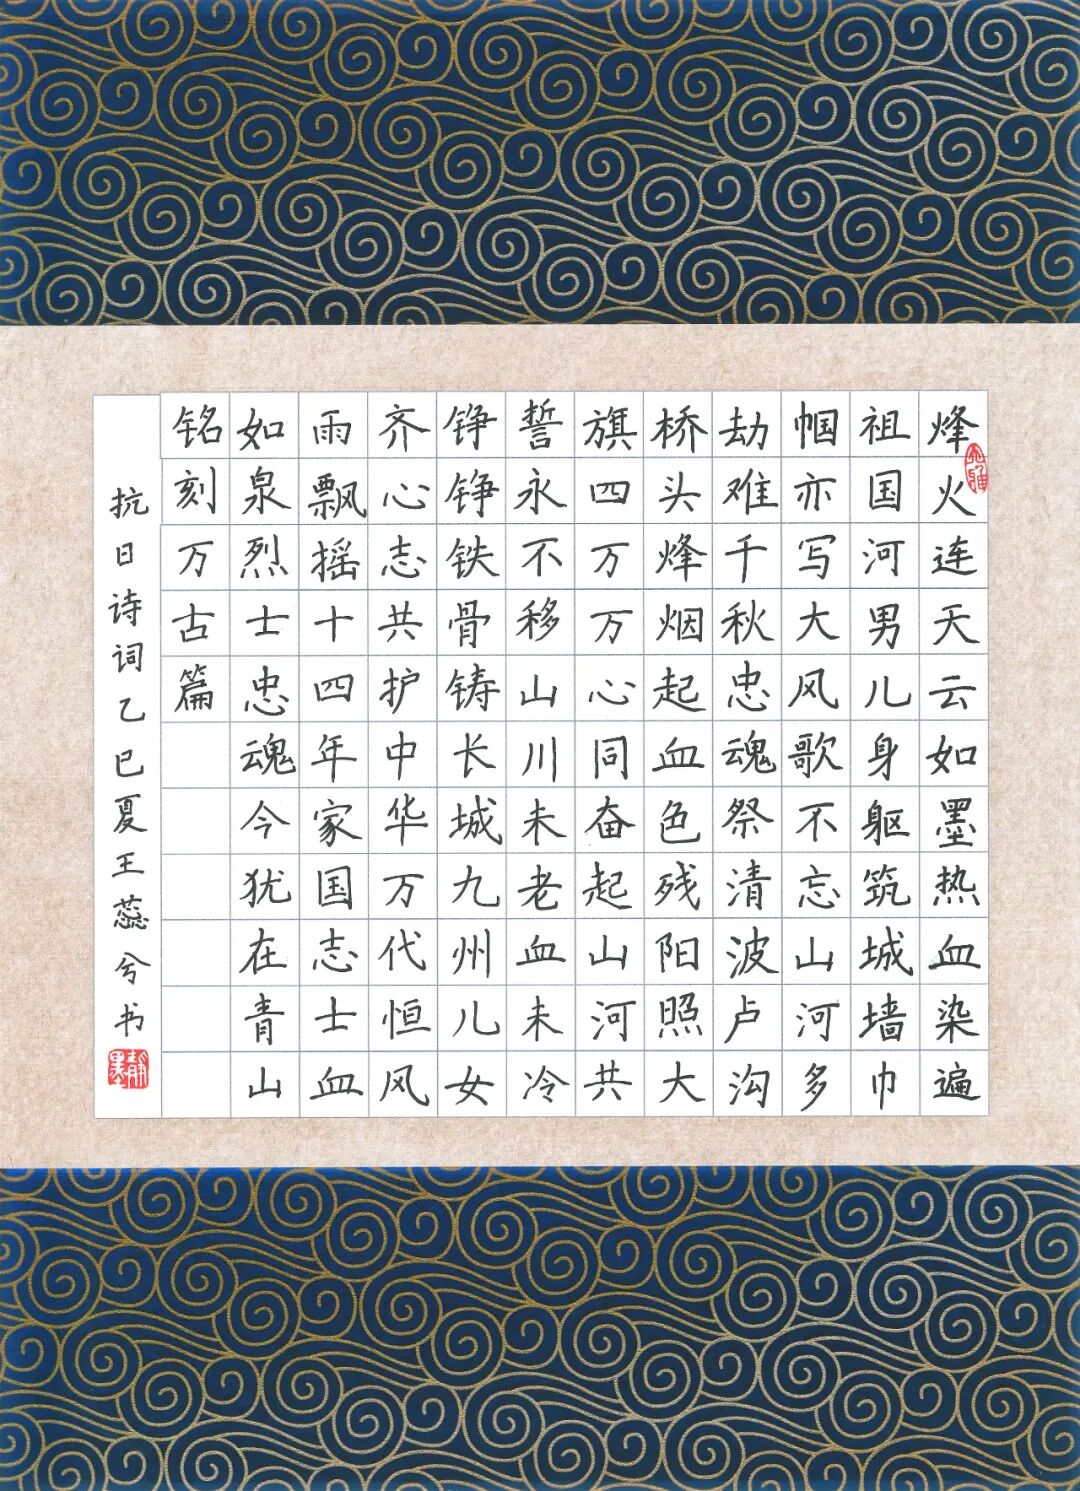 烽火连天云如墨热血染遍
祖国河男儿身躯筑城墙巾
帼亦写大风歌不忘山河多
劫难千秋忠魂祭清波卢沟
桥头烽烟起血色残阳照大
旗四万万心同奋起山河共
誓永不移山川未老血未冷
铮铮铁骨铸长城九州儿女
齐心志共护中华万代恒风
雨飘摇十四年家国志士血
如泉烈士忠魂今犹在青山
铭刻万古篇
抗日诗词乙巳夏王蕊兮书
静墨